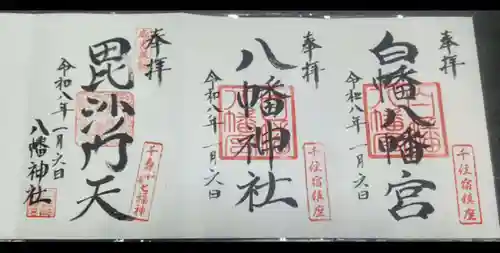 奉拝
白幡八幡宮
令和八年一月六日
千住宿鎮座
奉拝
八幡神社
令和八年一月六日
千住宿鎮座
奉拝
毘沙門天
令和八年一月六日
八幡神社
千寿七福神